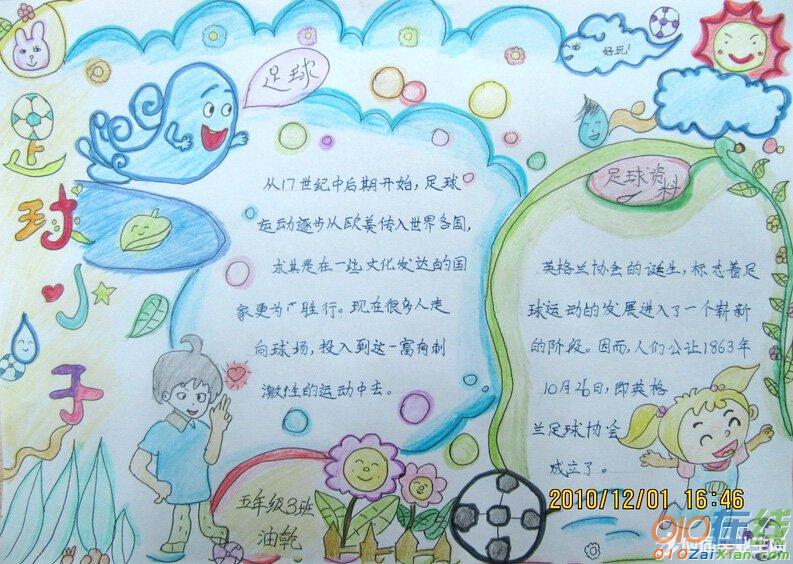 足球小子
足球
好玩!
从17世纪中后期开始，足球
运动逐步从欧美传入世界各国，
尤其是在一些文化发达的国
家更为广胜行。现在很多人走
向球场，投入到这一富有刺
激性的运动中去。
足球资料
英格兰协会的诞生，标志着足
球运动的发展进入了一个崭新
的阶段。因而，人们公让1863年
10月26日，即英格
兰足球协会
成立了。
五年级3班
油乾
2010/12/01 16:46
010在线
010zaixian.com